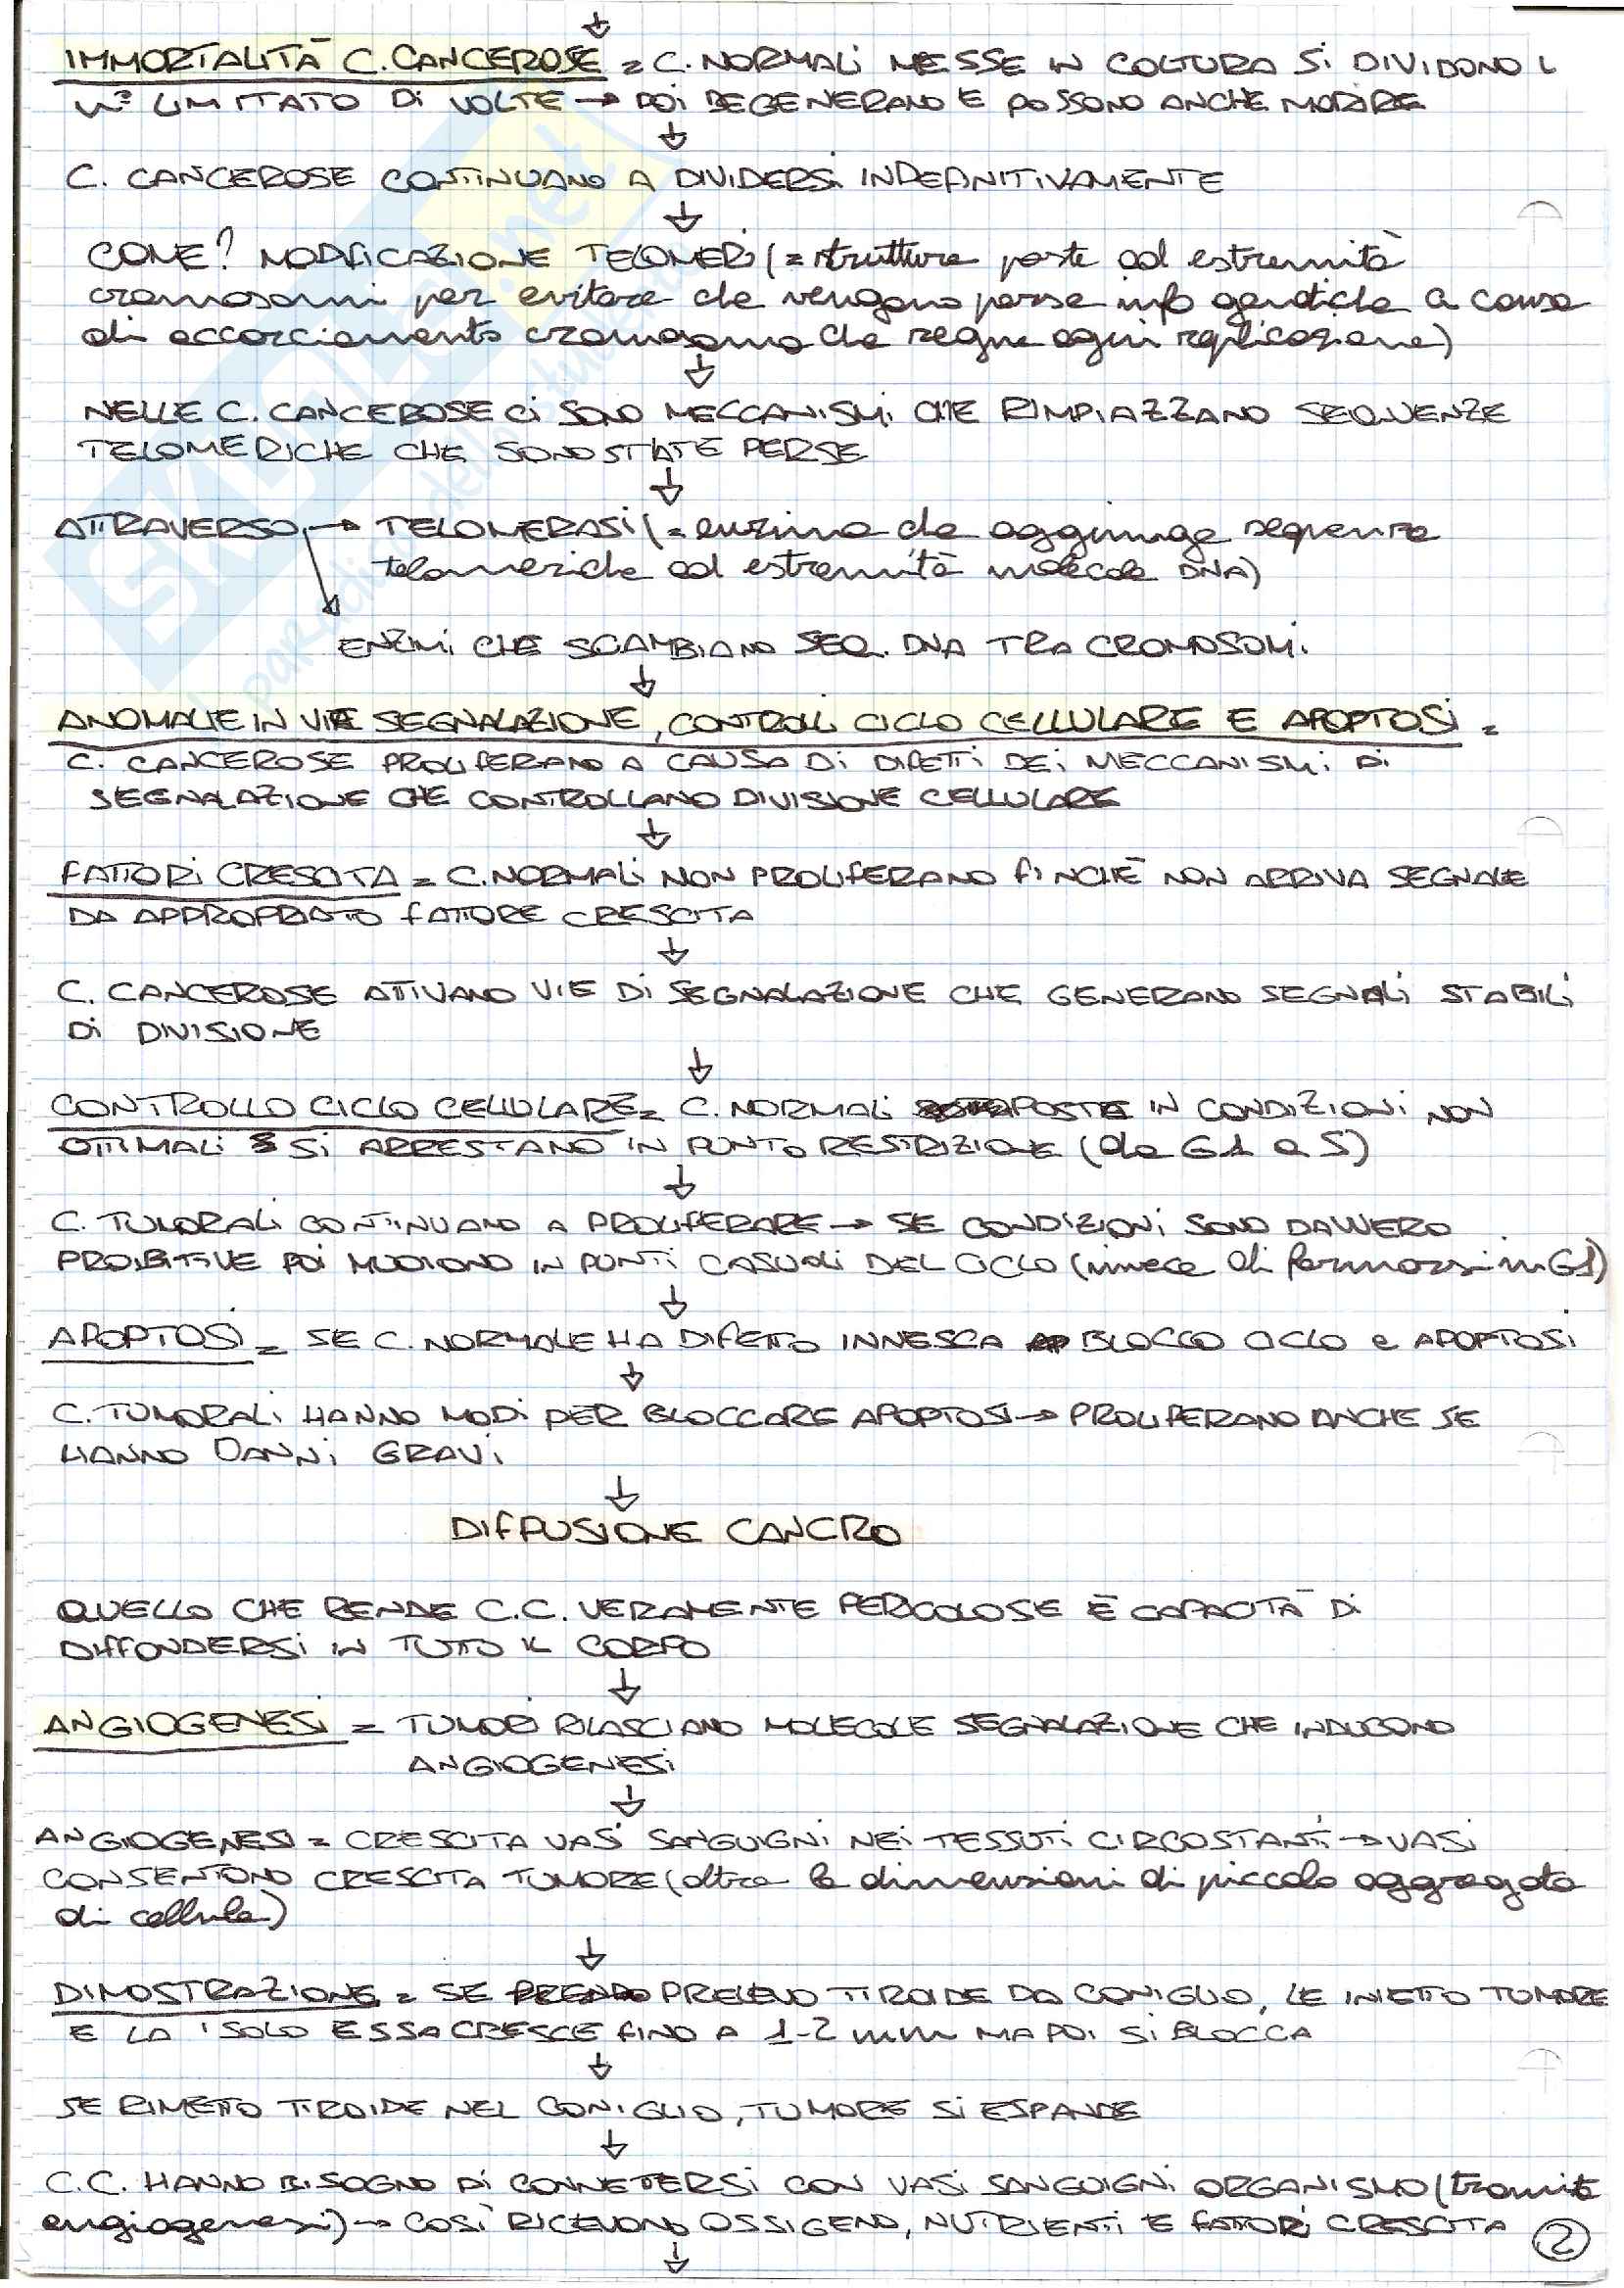 IMMORTALITÀ C. CANCEROSE = C. NORMALI MESSE IN COLTURA SI DIVIDONO
N° LIMITATO DI VOLTE → POI DEGENERANO E POSSONO ANCHE MORIRE
↓
C. CANCEROSE CONTINUANO A DIVIDERSI INDEFINITIVAMENTE
↓
COME? MODIFICAZIONE TELOMERI (= strutture poste ad estremità
cromosomi per evitare che vengano perse info genetiche a causa
di accorciamento cromosoma che segue ogni replicazione)
↓
NELLE C. CANCEROSE CI SONO MECCANISMI CHE RIMPIAZZANO SEQUENZE
TELOMERICHE CHE SONO STATE PERSE
↓
ATTRAVERSO → TELOMERASI (= enzima che aggiunge sequenze
telomeriche ad estremità molecole DNA)
ENZIMI CHE SCAMBIANO SEQ. DNA TRA CROMOSOMI
↓
ANOMALIE IN VIE SEGNALAZIONE, CONTROLLI CICLO CELLULARE E APOPTOSI =
C. CANCEROSE PROLIFERANO A CAUSA DI DIFETTI DEI MECCANISMI DI
SEGNALAZIONE CHE CONTROLLANO DIVISIONE CELLULARE
↓
FATTORI CRESCITA = C. NORMALI NON PROLIFERANO FINCHÈ NON ARRIVA SEGNALE
DA APPROPRIATO FATTORE CRESCITA
↓
C. CANCEROSE ATTIVANO VIE DI SEGNALAZIONE CHE GENERANO SEGNALI STABILI
DI DIVISIONE
↓
CONTROLLO CICLO CELLULARE = C. NORMALI POSTE IN CONDIZIONI NON
OTTIMALI SI ARRESTANO IN PUNTO RESTRIZIONE (da G1 a S)
↓
C. TUMORALI CONTINUANO A PROLIFERARE → SE CONDIZIONI SONO DAVVERO
PROIBITIVE POI MUOIONO IN PUNTI CASUALI DEL CICLO (invece di fermarsi in G1)
↓
APOPTOSI = SE C. NORMALE HA DIFETTO INNESCA BLOCCO CICLO e APOPTOSI
↓
C. TUMORALI HANNO MODI PER BLOCCARE APOPTOSI → PROLIFERANO ANCHE SE
HANNO DANNI GRAVI
↓
DIFFUSIONE CANCRO
QUELLO CHE RENDE C.C. VERAMENTE PERICOLOSE È CAPACITÀ DI
DIFFONDERSI IN TUTTO IL CORPO
↓
ANGIOGENESI = TUMORI RILASCIANO MOLECOLE SEGNALAZIONE CHE INDUCONO
ANGIOGENESI
↓
ANGIOGENESI = CRESCITA VASI SANGUIGNI NEI TESSUTI CIRCOSTANTI → VASI
CONSENTONO CRESCITA TUMORE (oltre le dimensioni di piccolo aggregato
di cellule)
↓
DIMOSTRAZIONE = SE PRELEVO TIROIDE DA CONIGLIO, LE INIETTO TUMORE
E LA ISOLO ESSA CRESCE FINO A 1-2 mm MA POI SI BLOCCA
↓
SE RIMETTO TIROIDE NEL CONIGLIO, TUMORE SI ESPANDE
↓
C.C. HANNO BISOGNO DI CONNETTERSI CON VASI SANGUIGNI ORGANISMO (tramite
angiogenesi) → COSÌ RICEVONO OSSIGENO, NUTRIENTI E FATTORI CRESCITA 2
↓